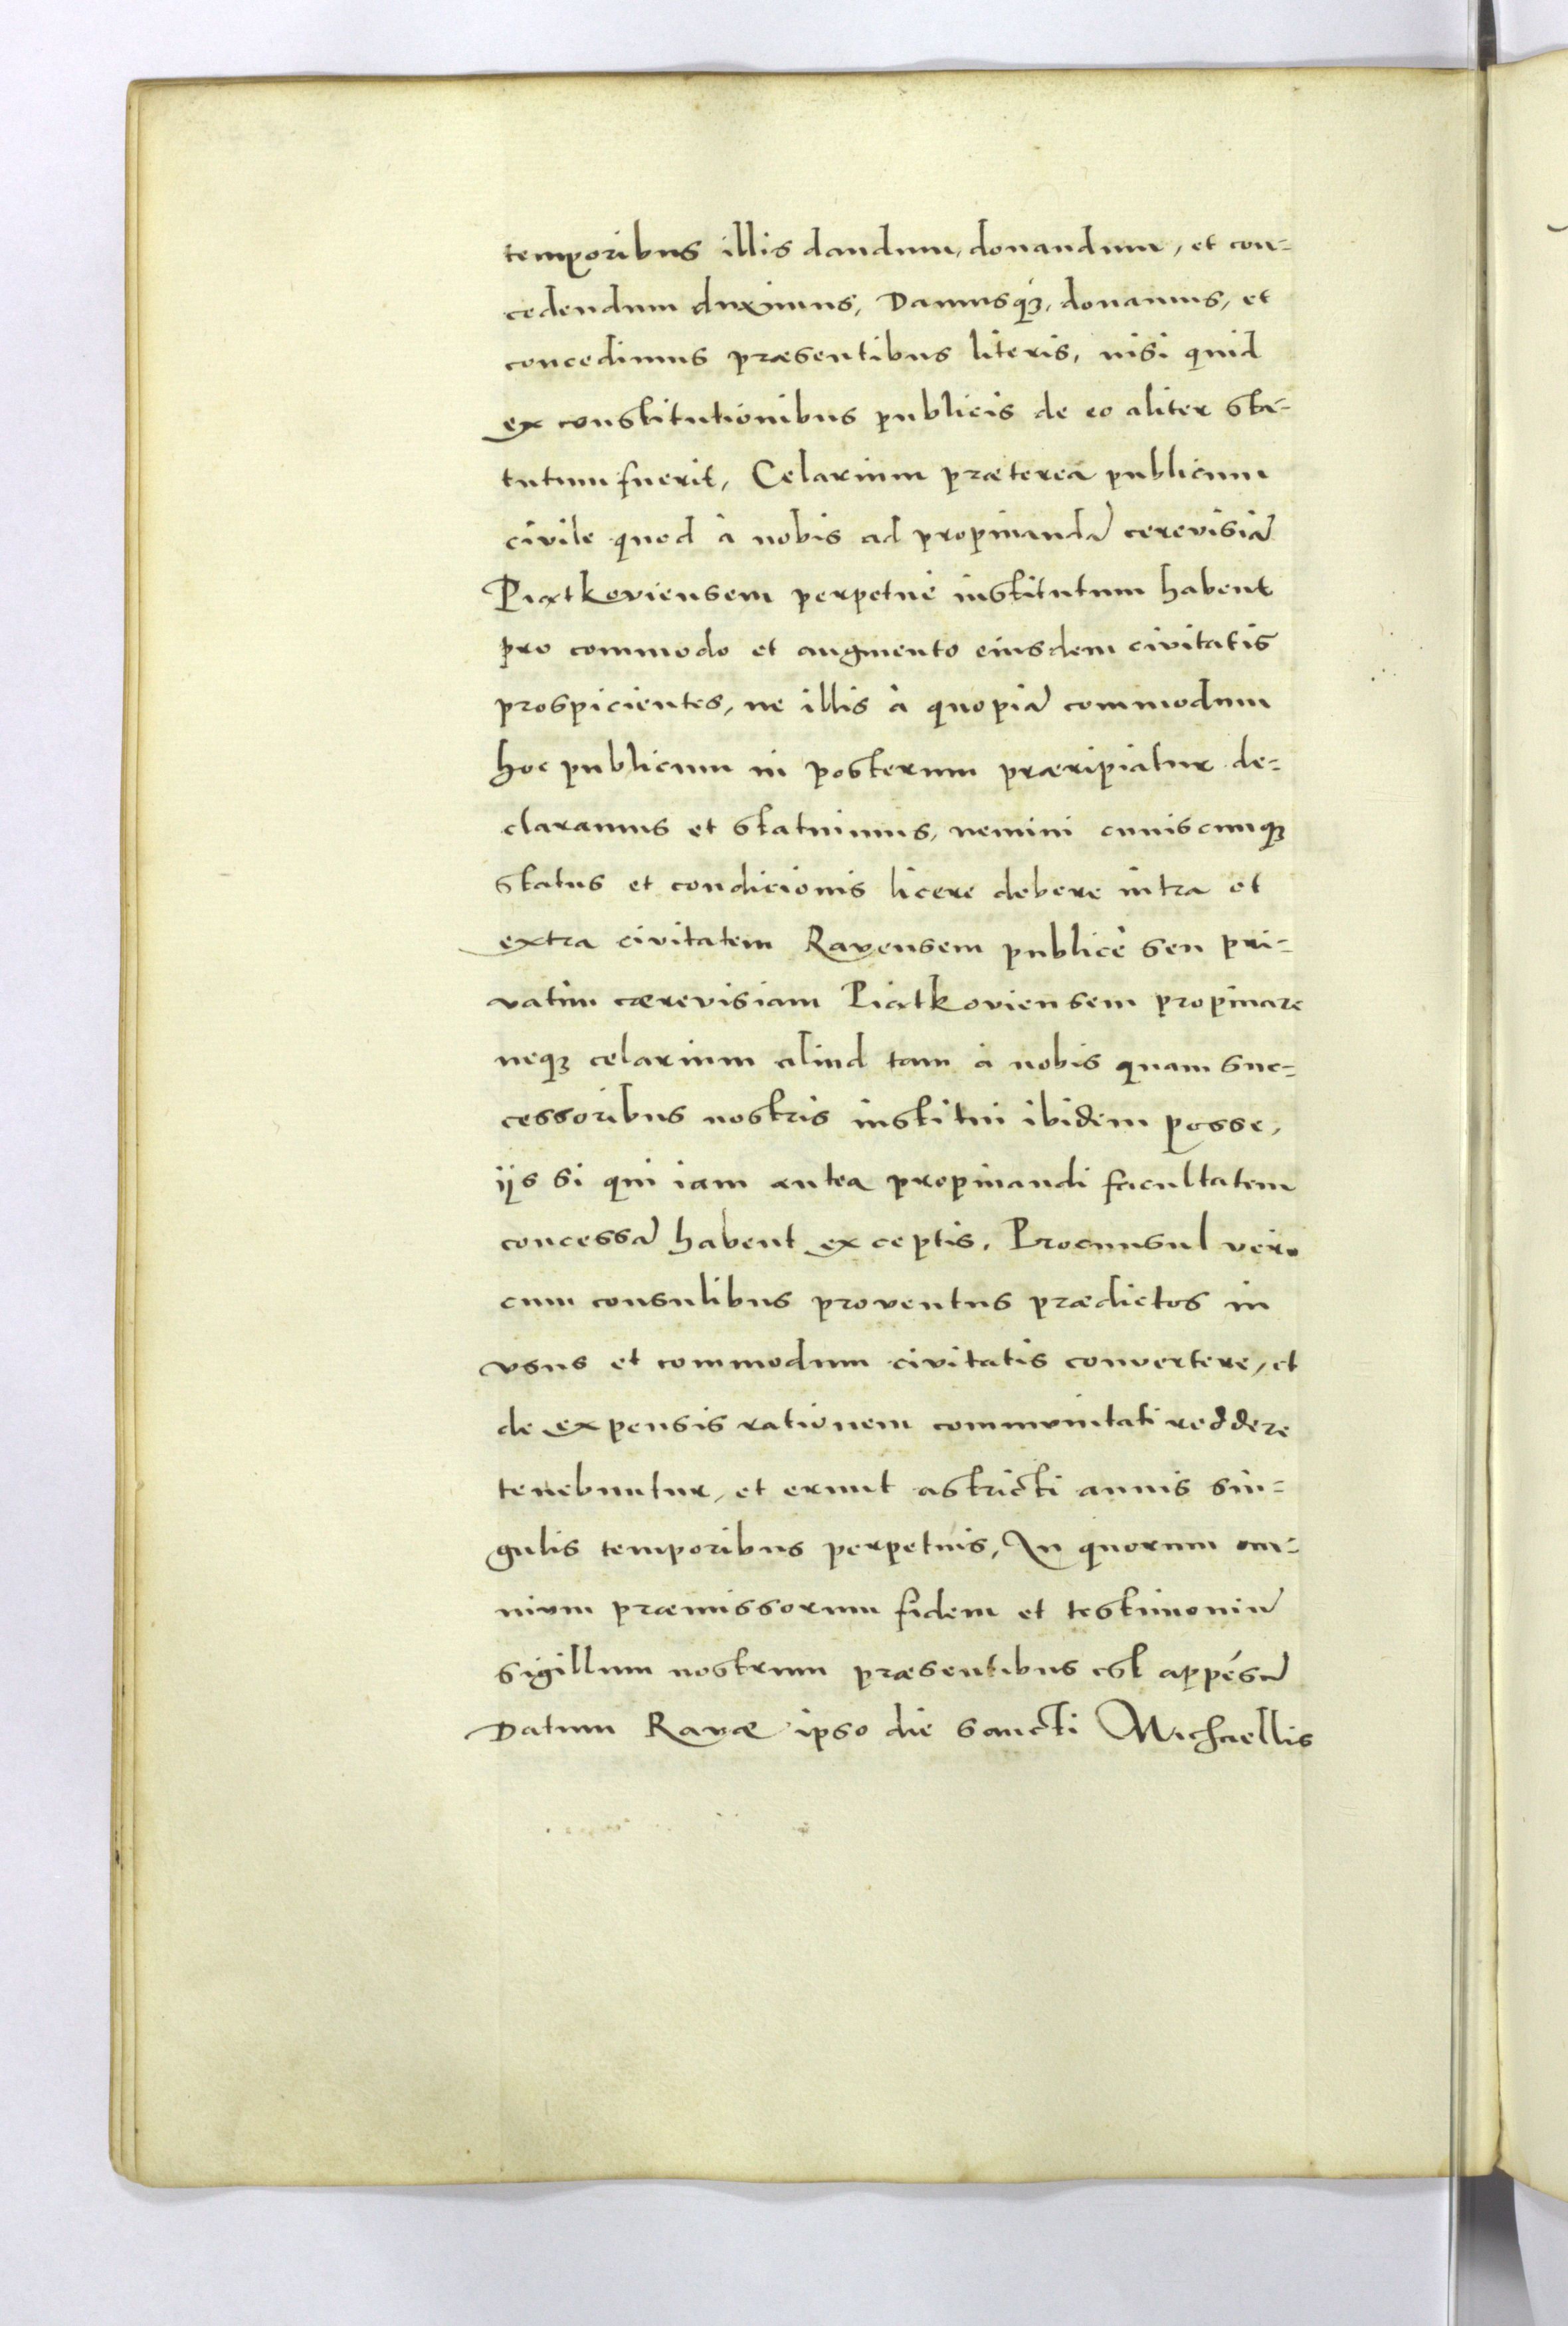 temporibus illis dandum, donandum, et con=
cedendum duximus, Damusq́ꝫ, donamus, et
concedimus præsentibus literis, nisi quid
ex constitutionibus publicis de eo aliter sta=
tutum fuerit, Celarium præterea publicum
civile quod à nobis ad propinandã cerevisiã
Piatkoviensem perpetuè institutum habent
pro commodo et augmento eiusdem civitatis
prospicientes, ne illis à quopiã commodum
hoc publicum in posterum præripiatur de=
claramus et statuimus, nemini cuiuscunqꝫ
status et condicionis licere debere intra et
extra civitatem Ravensem publicè seu pri=
vatim cærevisiam Piatkoviensem propinare
neqꝫ celarium aliud tam à nobis quam suc=
cessoribus nostris institui ibidem posse,
ijs si qui iam antea propinandi facultatem
concessã habent exceptis. Proconsul vero
cum consulibus proventus prædictos in
vsus et commodum civitatis convertere, et
de expensis rationem communitati reddere
tenebuntur, et erunt astricti annis sin=
gulis temporibus perpetuis, In quorum om=
nivm præmissorum fidem et testimoniũ
sigillum nostrum præsentibus est appẽsũ
Datum Ravæ ipso die sancti Michaellis